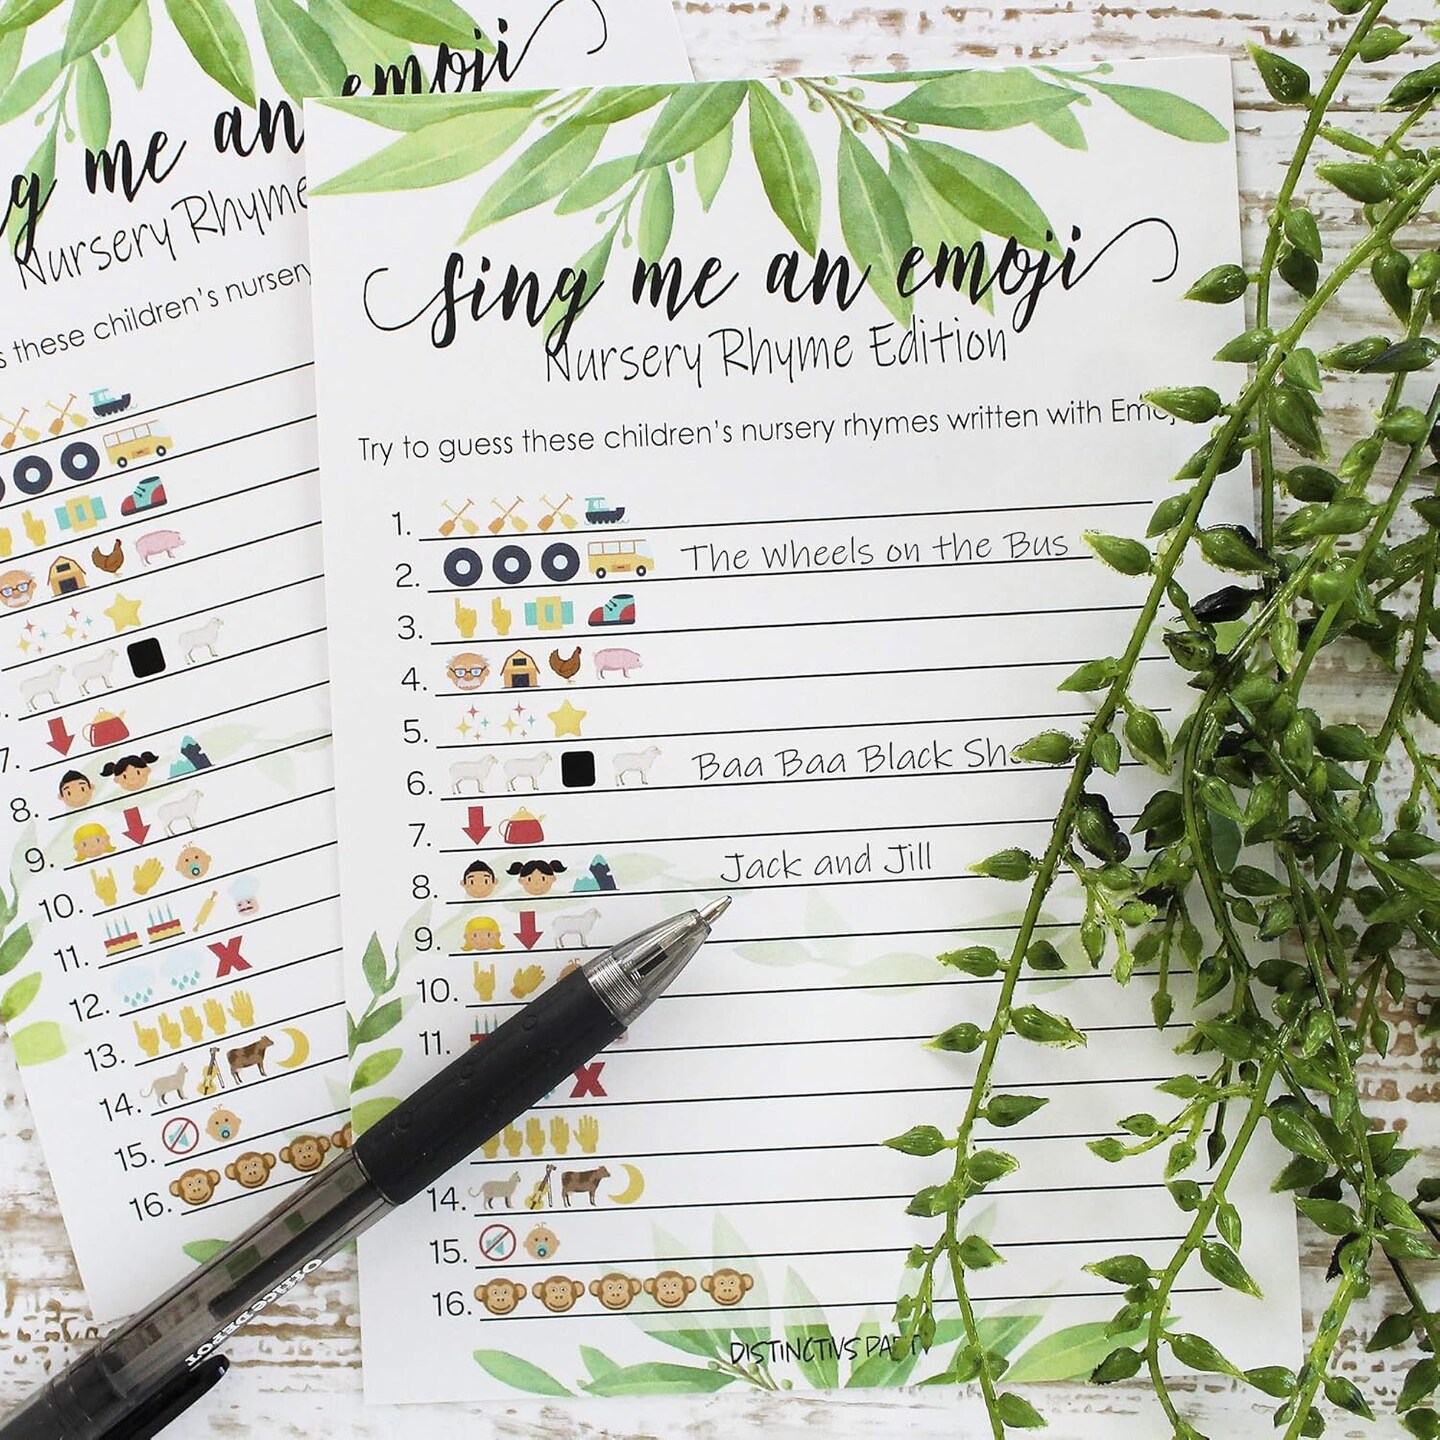 me an emoji
Nursery Rhyme
these children's nursery
7.
8.
9.
10.
11.
12.
13.
14.
15.
16.
Sing me an emoji
Nursery Rhyme Edition
Try to guess these children's nursery rhymes written with
1.
2. The Wheels on the Bus
3.
4.
5.
6. Baa Baa Black
7.
8. Jack and Jill
9.
10.
11.
14.
15.
16.
Office DEPOT